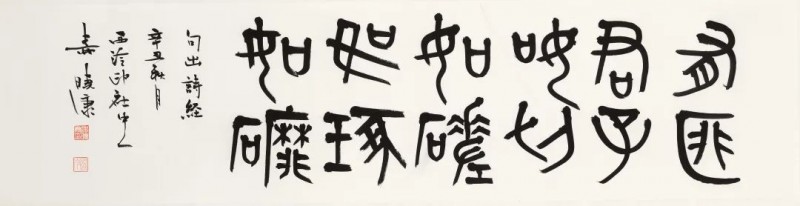 有匪
君子
如切
如磋
如琢
如䃺
句出詩經
辛丑秋月
西泠印社中人